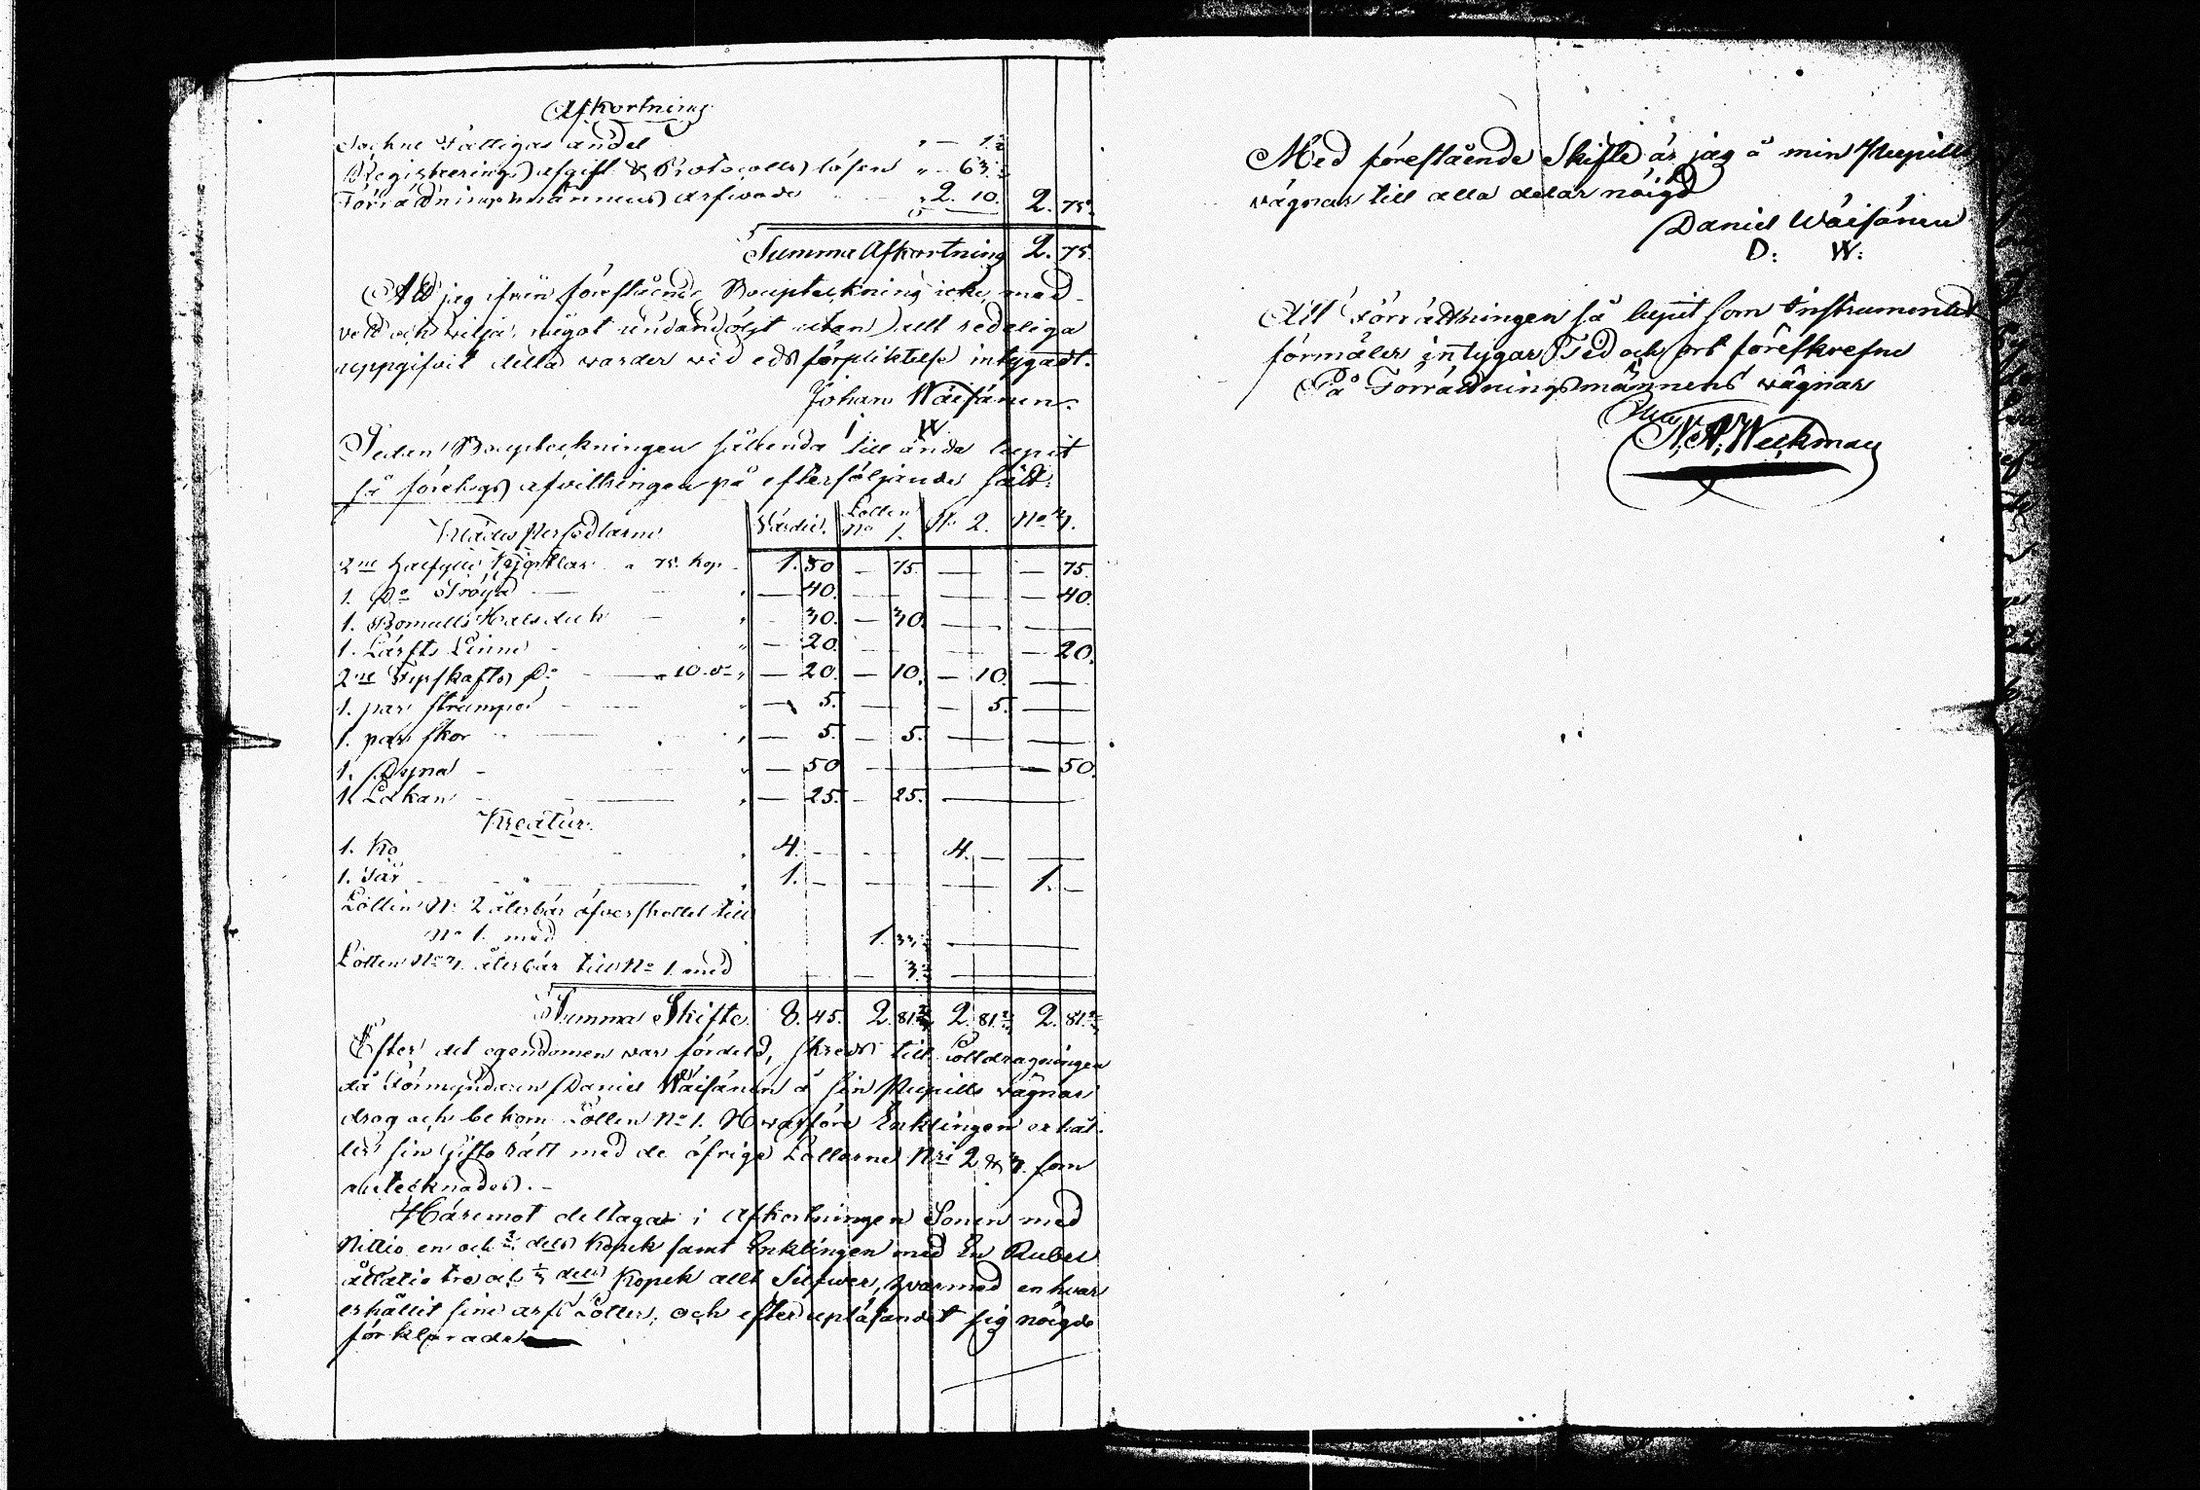 Afkortning
Sockne Fattigas andel " — 1½
Registrerings afgift & Protocolls lösen " — 63½
Förrädningsmännens arfwode " 2. 10. 2. 75.
Summa Afkortning 2. 75.
Att jag ifrån förestående Bouptekning icke med
vett och wilja något undandöljt utan allt redeliga
uppgifvit detta warder wid eds förpliktelse intygadt.
Johan Wäisänen.
I W
Sedan Bouptekningen sålunda till ända lupit
så företogs afvittringen på efterföljande sätt:
Klädes Persedlarne Värdie. Lotten No 1. No 2. No 3.
2ne halfylle Kjortlar " 75. Kop. 1. 50 — 75. — — 75.
1. Do Tröya — 40. — — — 40.
1. Bomulls Halsduk — 30. — 30. — —
1. Lärfts Linne — 20. — — — 20.
2ne Fyrskafts Do " 10. do " — 20. — 10. — 10. —
1. par strumpor — 5. — — 5. —
1. par skor — 5. — 5. — —
1. Dyna — 50 — — — 50.
1. Lakan — 25. — 25. — —
Kreatur.
1. Ko 4. — — 4. — —
1. Får 1. — — — 1. —
Lotten No 2 återbär öfverskottet till
No 1. med 1. 33⅓ —
Lotten No 3. återbär till No 1. med — 3⅓ —
Summa Skifte 8. 45. 2. 81⅔ 2. 81⅔ 2. 81⅔
Efter det egendomen war fördeld, skreds till Lottdragningen
då Förmyndaren Daniel Wäisänen å sin Pupills vägnar
drog och bekom Lotten No 1. Hwarföre Enklingen erhål-
ler sin Gifto rätt med de öfrige Lotterne Nri 2 & 3. som
antecknades. —
Häremot deltager i Afkortningen Sonen med
Nittio en och ⅔ dels Kopek samt Enklingen med En Rubel
åttatio tre och ⅓ dels Kopek allt Silfwer, hwarmed en hwar
erhållit sine arfs Lotter, och efter upläsandet sig nöigde
förklarade

Med förestående Skifte är jag å min Pupills
vägnar till alla delar nöigd
Daniel Wäisänen
D: W:
Att Förrättningen så lupit som Instrumentet
förmäler intygar Tid och ort föreskrefne
På Förrättningsmännens wägnar
N. A. Weckman